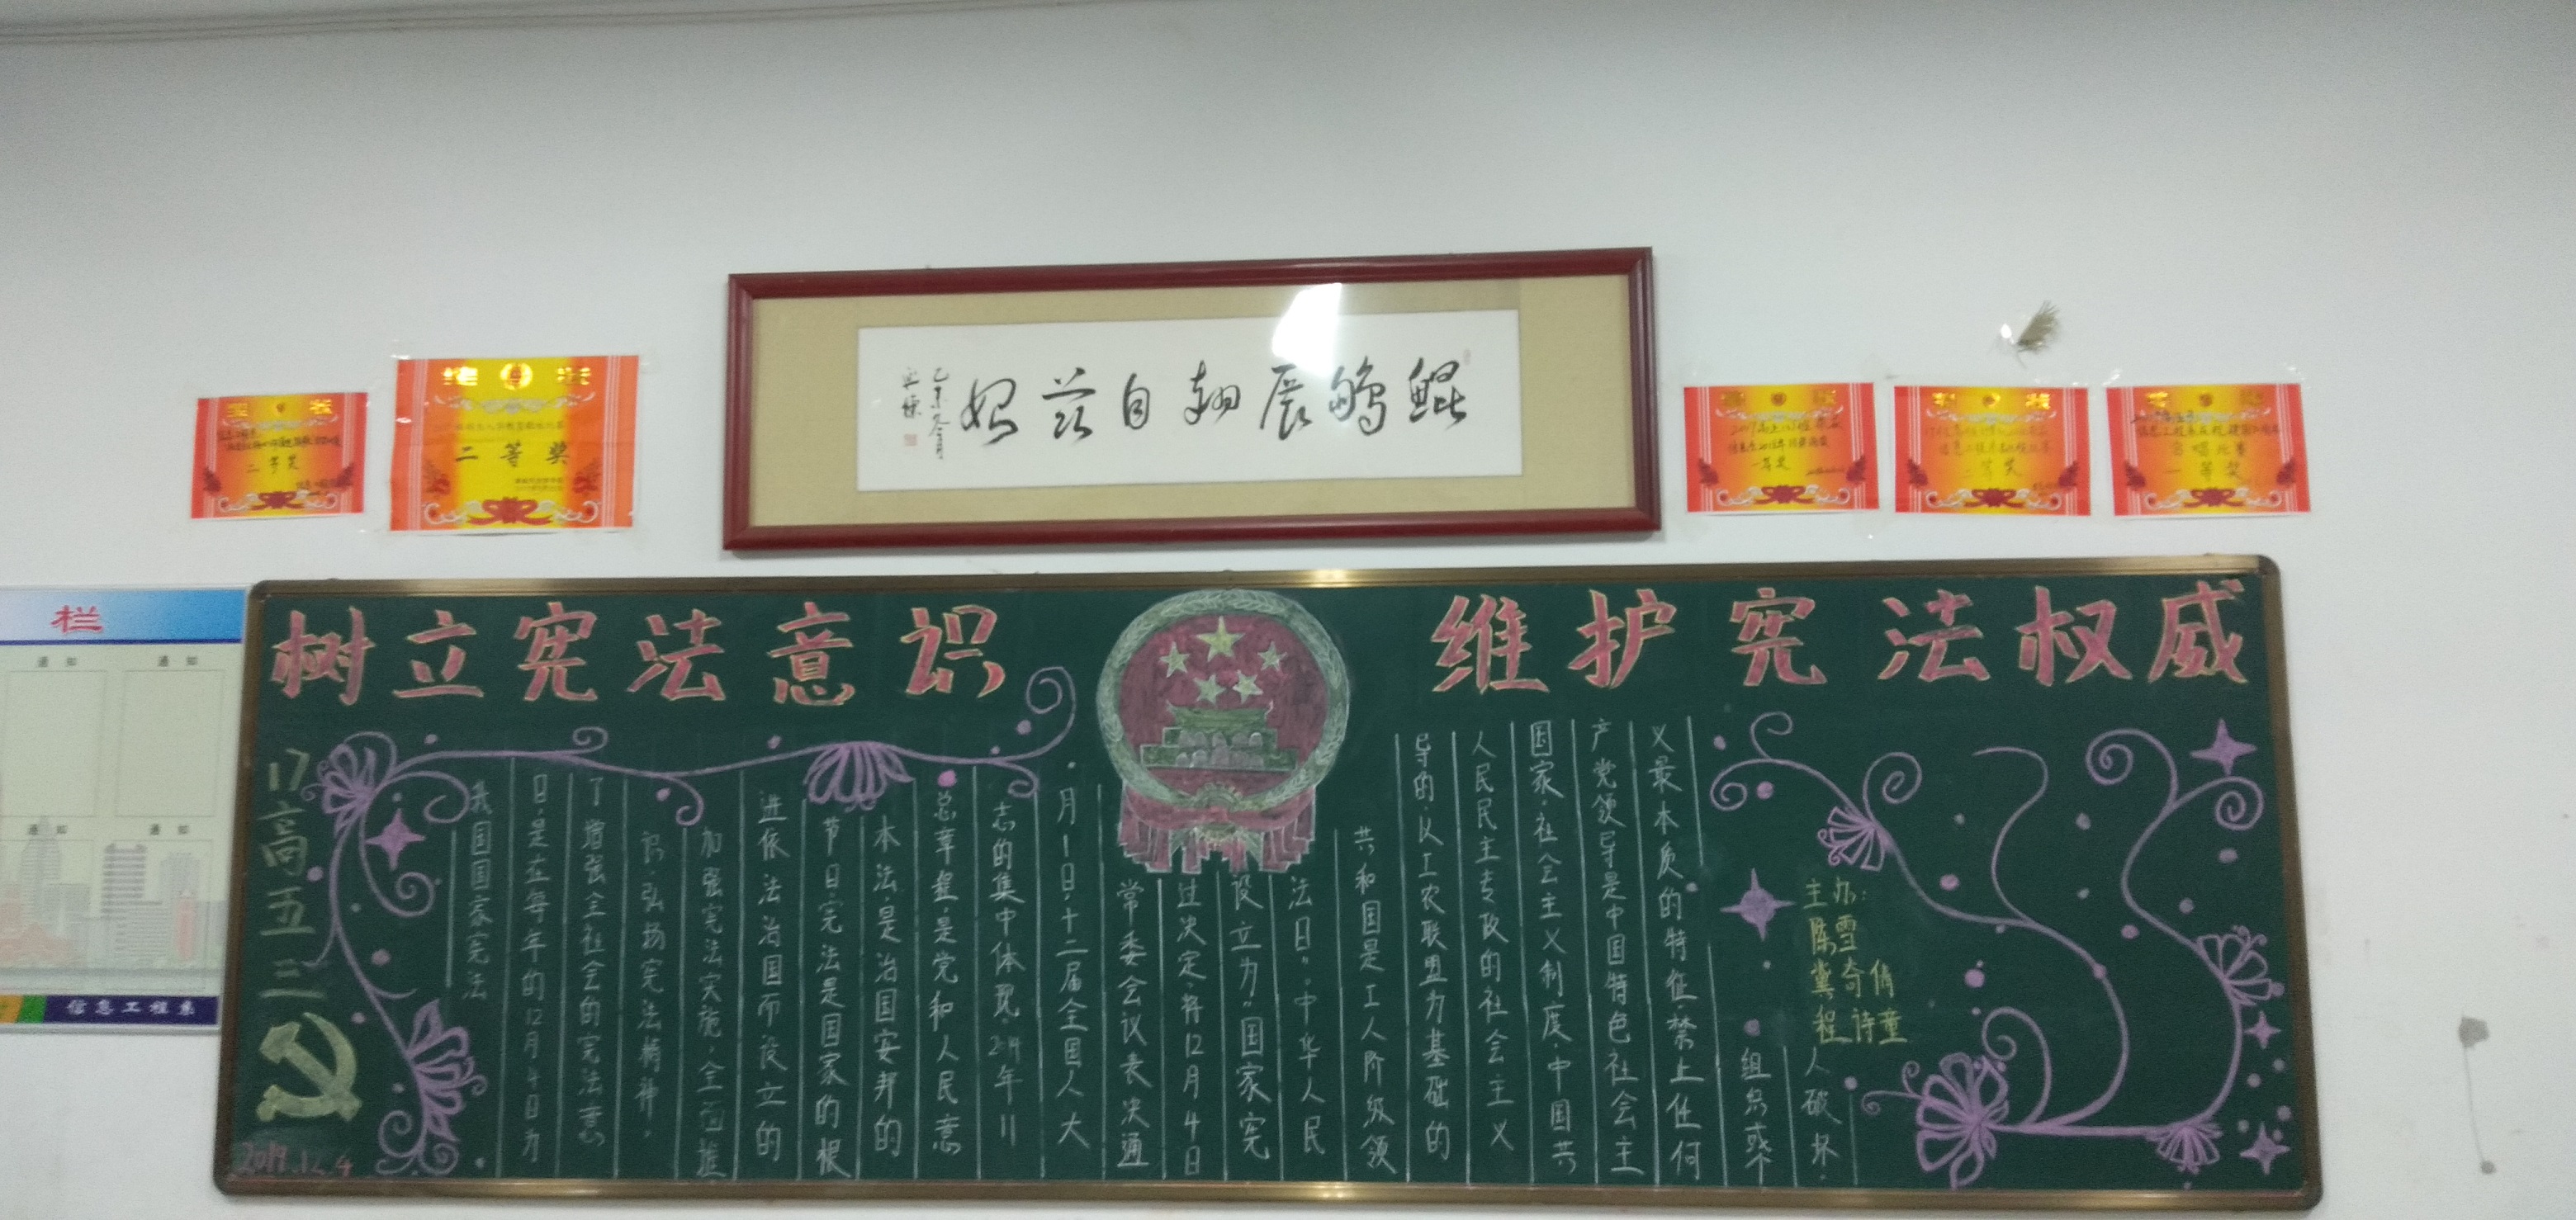 鲲鹏展翅自兹始
奖状
二等奖
奖状
二等奖
奖状
一等奖
奖状
二等奖
奖状
合唱比赛
一等奖
栏
通知
通知
通知
通知
信息工程系
树立宪法意识
维护宪法权威
17高五三
2019.12.4
我国国家宪法
日，是在每年的12月4日为
了增强全社会的宪法意
识，弘扬宪法精神，
加强宪法实施，全面推
进依法治国而设立的
节日宪法是国家的根
本法，是治国安邦的
总章程，是党和人民意
志的集中体现。2014年11
月1日，十二届全国人大
常委会议表决通
过决定，将12月4日
设立为“国家宪
法日”。中华人民
共和国是工人阶级领
导的以工农联盟为基础的
人民民主专政的社会主义
国家，社会主义制度，中国共
产党领导是中国特色社会主
义最本质的特征禁止任何
组织或个
人破坏。
主办：
陈雪
冀奇倩
程诗童